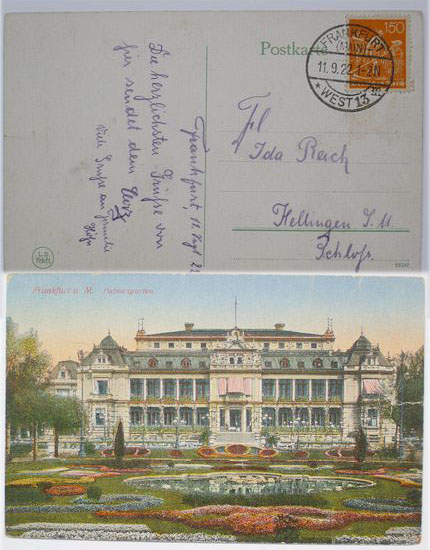 Postkarte
150
FRANKFURT
(MAIN)
11.9.22.1-2N
* WEST 13 *
Die herzlichsten Grüße von
hir sendet dem
Herz
Viele Grüße an Familie
Frankfurt 11. Sept 22
Frl
Ida Reich
Hellingen S. M.
Schloß.
Frankfurt a. M. Palmengarten.